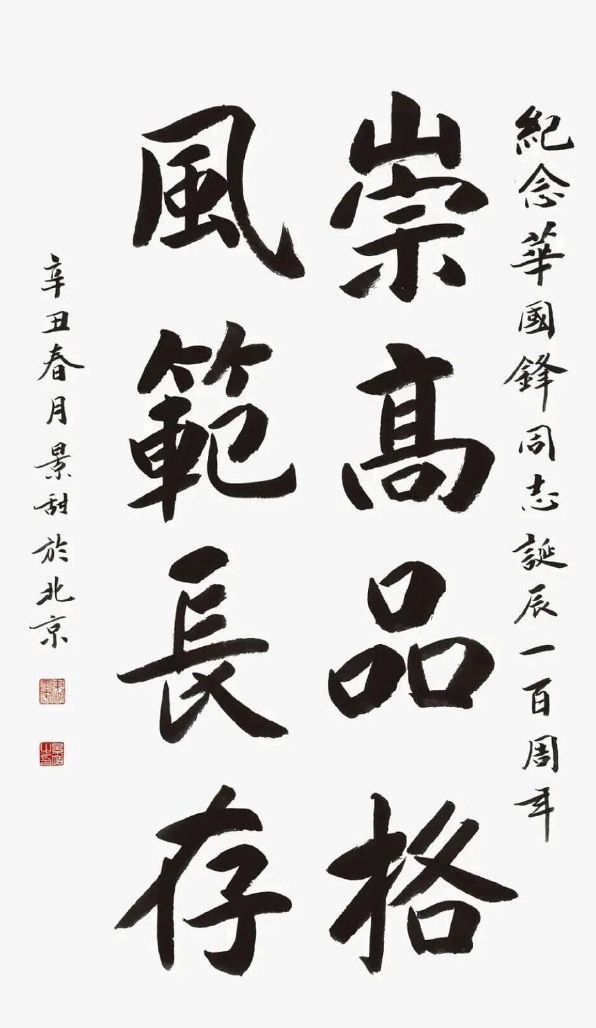 紀念華國鋒同志誕辰一百周年
崇髙品格
風範長存
辛丑春月景甜於北京